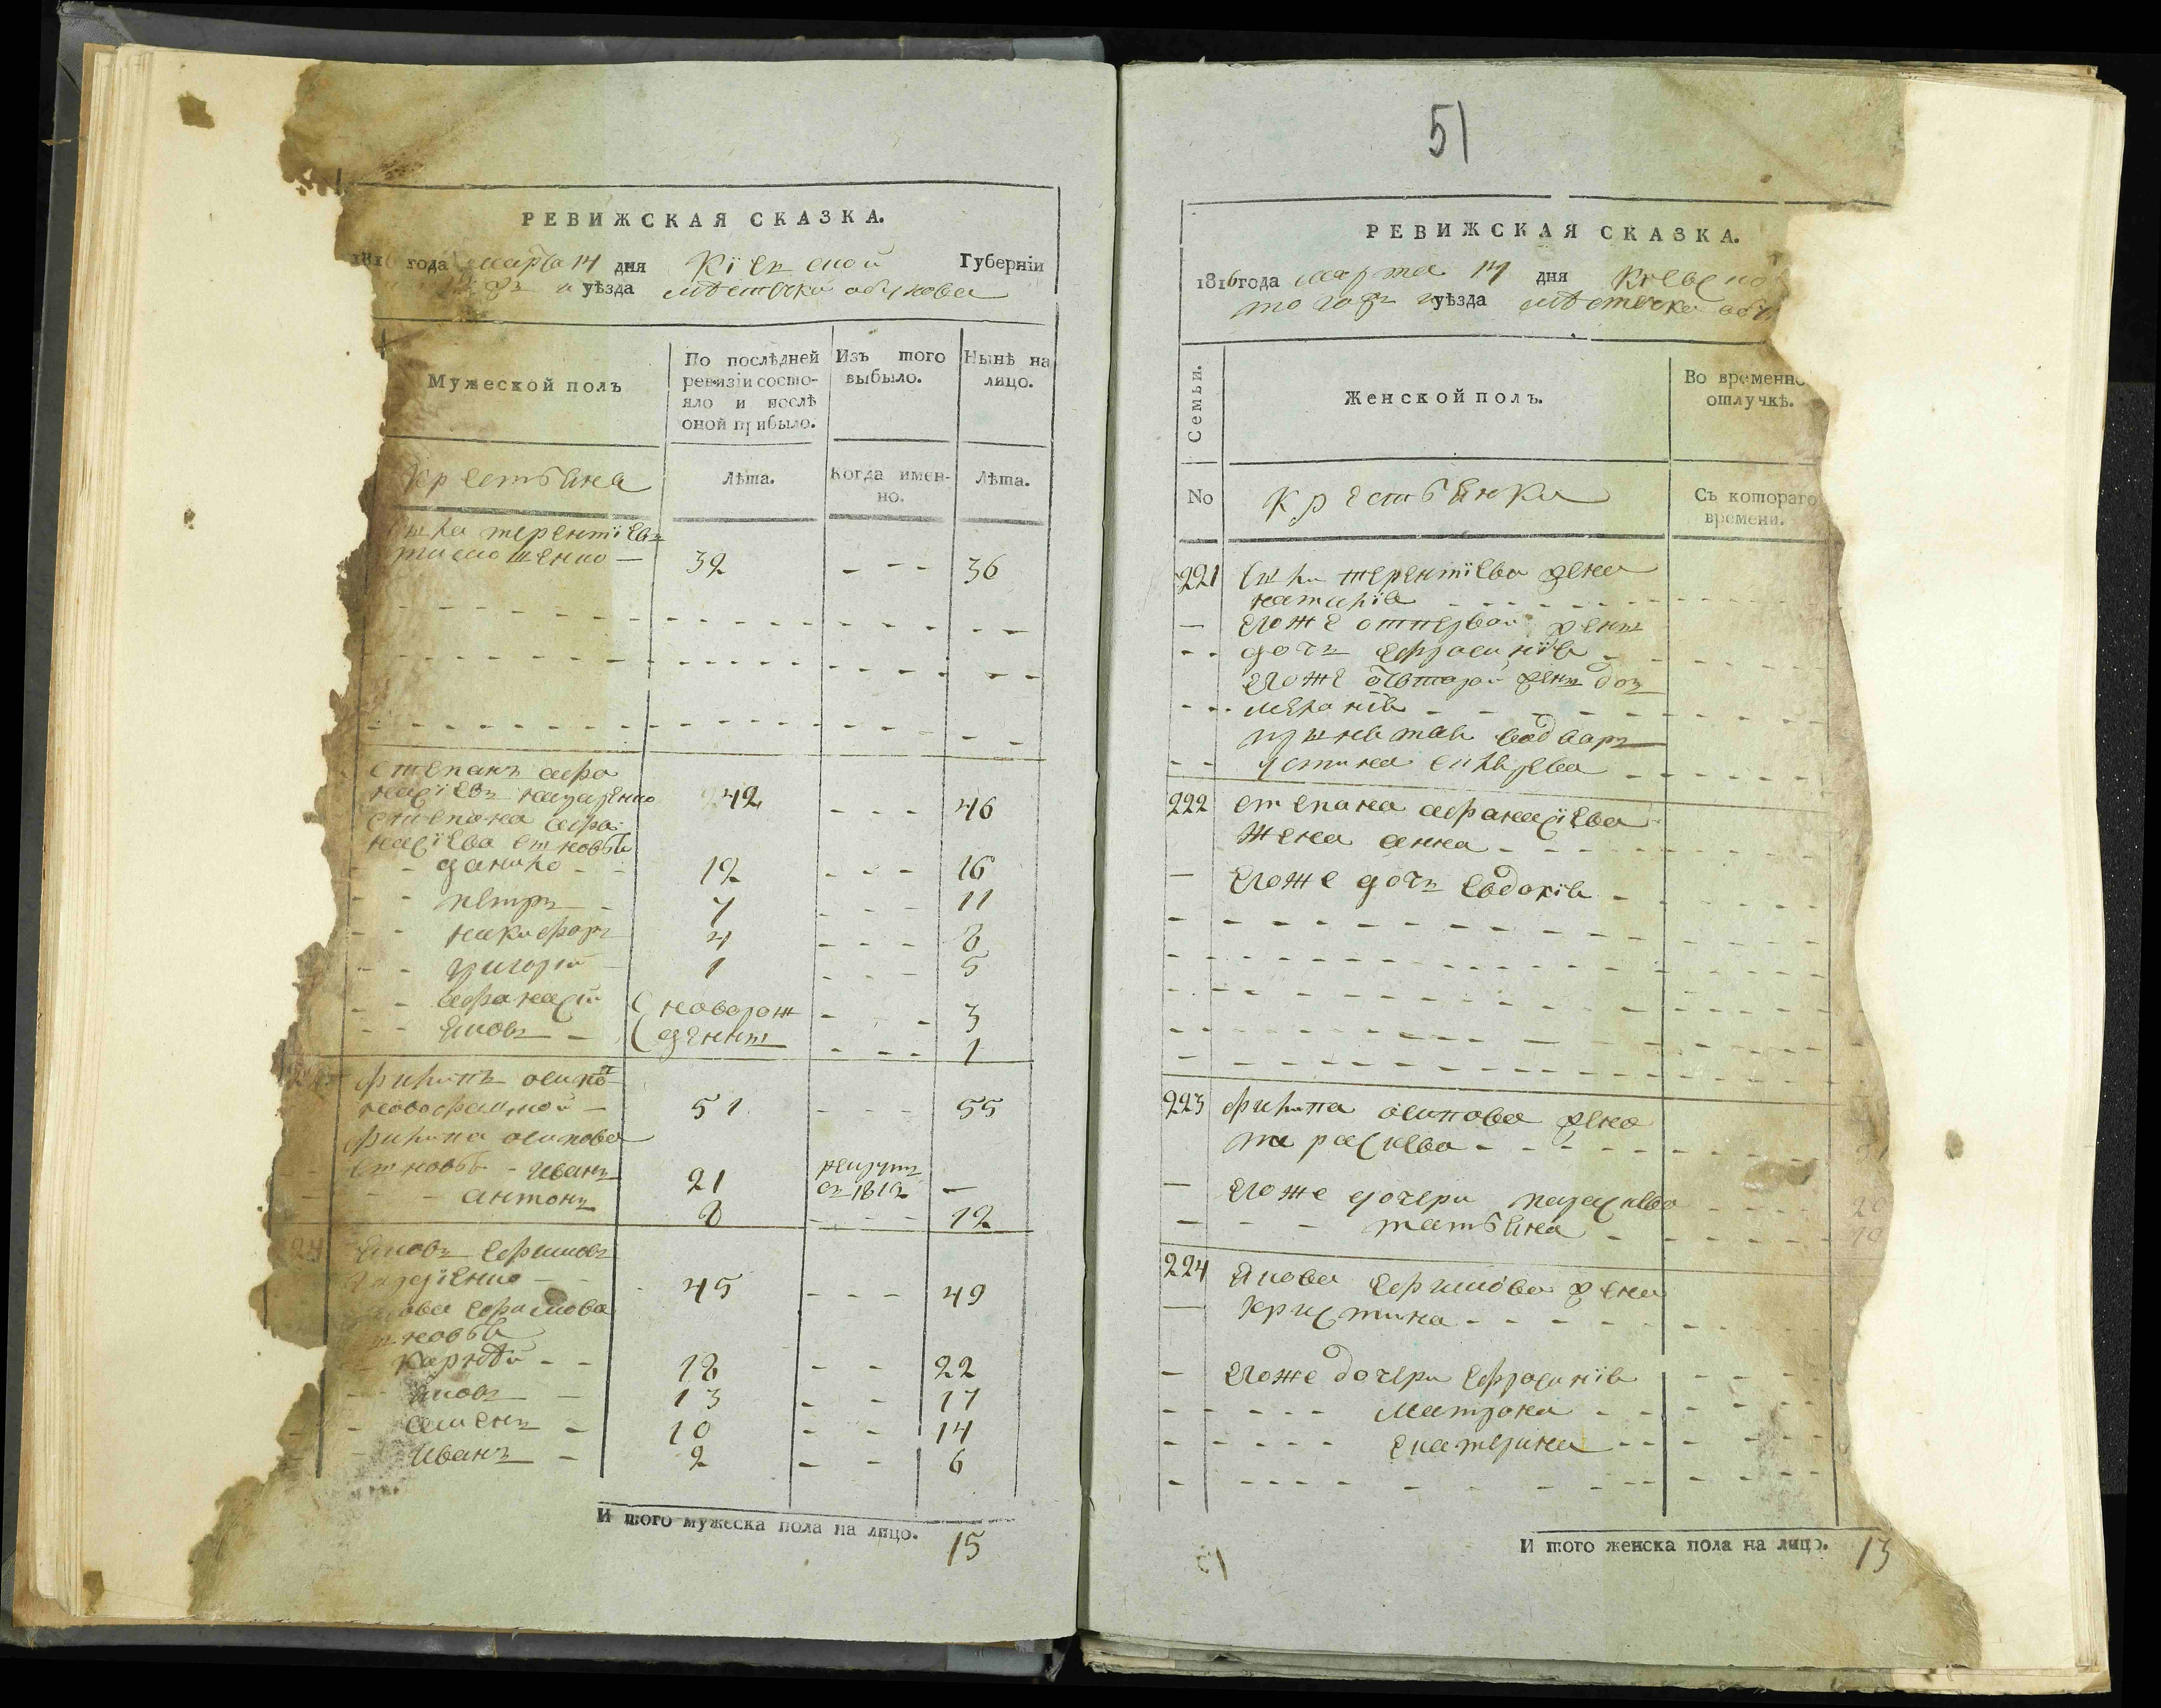 РЕВИЖСКАЯ СКАЗКА.
181 года марта 14 дня Кіевской Губерніи
уѣзда мѣстечка обухова
Мужеской полъ
По послѣдней ревизіи состояло и послѣ оной прибыло.
Изъ того выбыло.
Нынѣ на лицо.
Крестьяна
Лѣта.
Когда именно.
Лѣта.
терентіевъ
32 - - - 36
Степанъ афа
насіевъ назаренко 42 - - - 46
Степана афа
насіева сыновья
- - данило - - 12 - - - 16
- - петръ - 7 - - - 11
- - никифоръ 4 - - - 8
- - григорій 1 - - - 5
- - афанасій новорож - - 3
- - Яковъ - дѣнны - - - 1
филипъ осипо
51 - - - 55
филипа осипова
сыновья - Иванъ 21 рекрутъ въ 1812 —
- антонъ 8 - - - 12
Яковъ Ефимовъ
45 - - - 49
Ефимова
сыновья
- Карнѣй - - 18 - - 22
- Яковъ - 13 - - 17
- Семенъ - 10 - - 14
- Иванъ - 2 - - 6
И того мужеска пола на лицо. 15
51
РЕВИЖСКАЯ СКАЗКА.
1816 года марта 14 дня Кіевско
того жъ уѣзда мѣстечка обу
Семьи.
Женской полъ.
Во временно отлучкѣ.
No
Крестьянки
Съ котораго времени.
221 терентіева жена
наталія
— Егоже отпервой жены
- - дочъ Ефросинія
Егоже отвторой жены доч
- - меланія
- - устина
222 степана афанасіева
жена анна
— Егоже дочъ Евдокія
223 филипа осипова жена
— Егоже дочери
— - - татьяна
224 Якова Ефимова жена
— Кристина
- Егоже дочери Ефросинія
- - - - - Матрона
- - - - - Екатерина
И того женска пола на лицо. 13
51